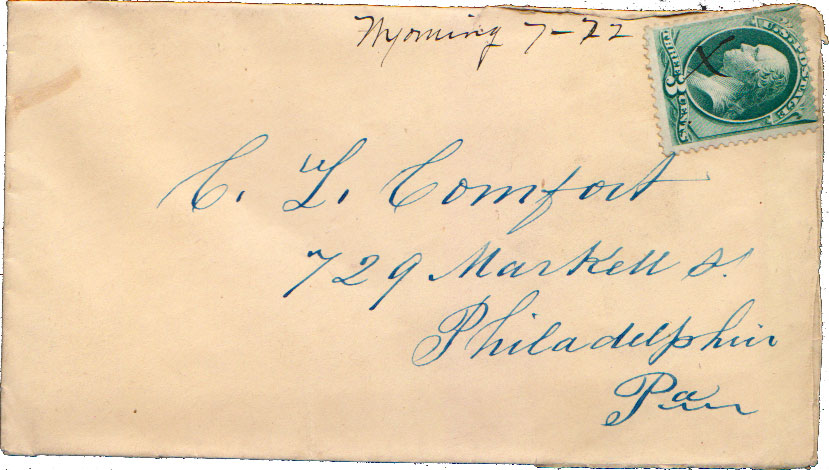 Wyoming 7-22
U.S. POSTAGE
THREE 3 CENTS
X
C. L. Comfort
729 Markett St.
Philadelphia
Pa